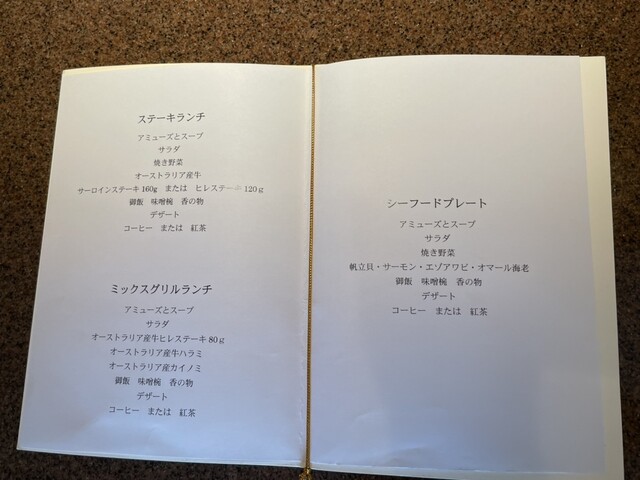 ステーキランチ
アミューズとスープ
サラダ
焼き野菜
オーストラリア産牛
サーロインステーキ160g または ヒレステーキ120g
御飯 味噌椀 香の物
デザート
コーヒー または 紅茶
ミックスグリルランチ
アミューズとスープ
サラダ
オーストラリア産牛ヒレステーキ80g
オーストラリア産牛ハラミ
オーストラリア産カイノミ
御飯 味噌椀 香の物
デザート
コーヒー または 紅茶
シーフードプレート
アミューズとスープ
サラダ
焼き野菜
帆立貝・サーモン・エゾアワビ・オマール海老
御飯 味噌椀 香の物
デザート
コーヒー または 紅茶